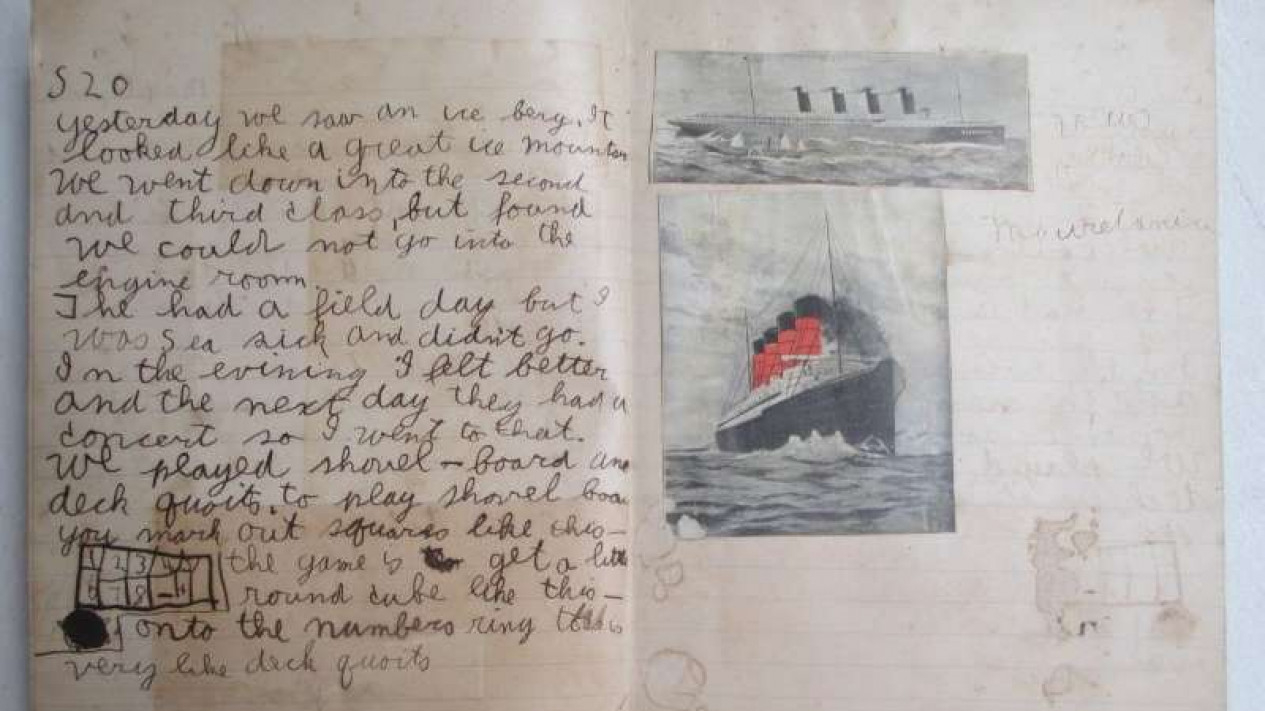 S 20
yesterday we saw an ice berg. It
looked like a great ice mountan
We went down into the second
and third class, but found
we could not go into the
engine room.
The had a field day but I
was sea sick and didn't go.
In the evining I felt better
and the next day they had a
concert so I went to that.
We played shovel-board and
deck quoits. to play shovel boa
you mark out squares like this-
1 2 3
the game is get a little
7 8
round cube like this-
onto the numbers ring
very like deck quoits
Mauretania